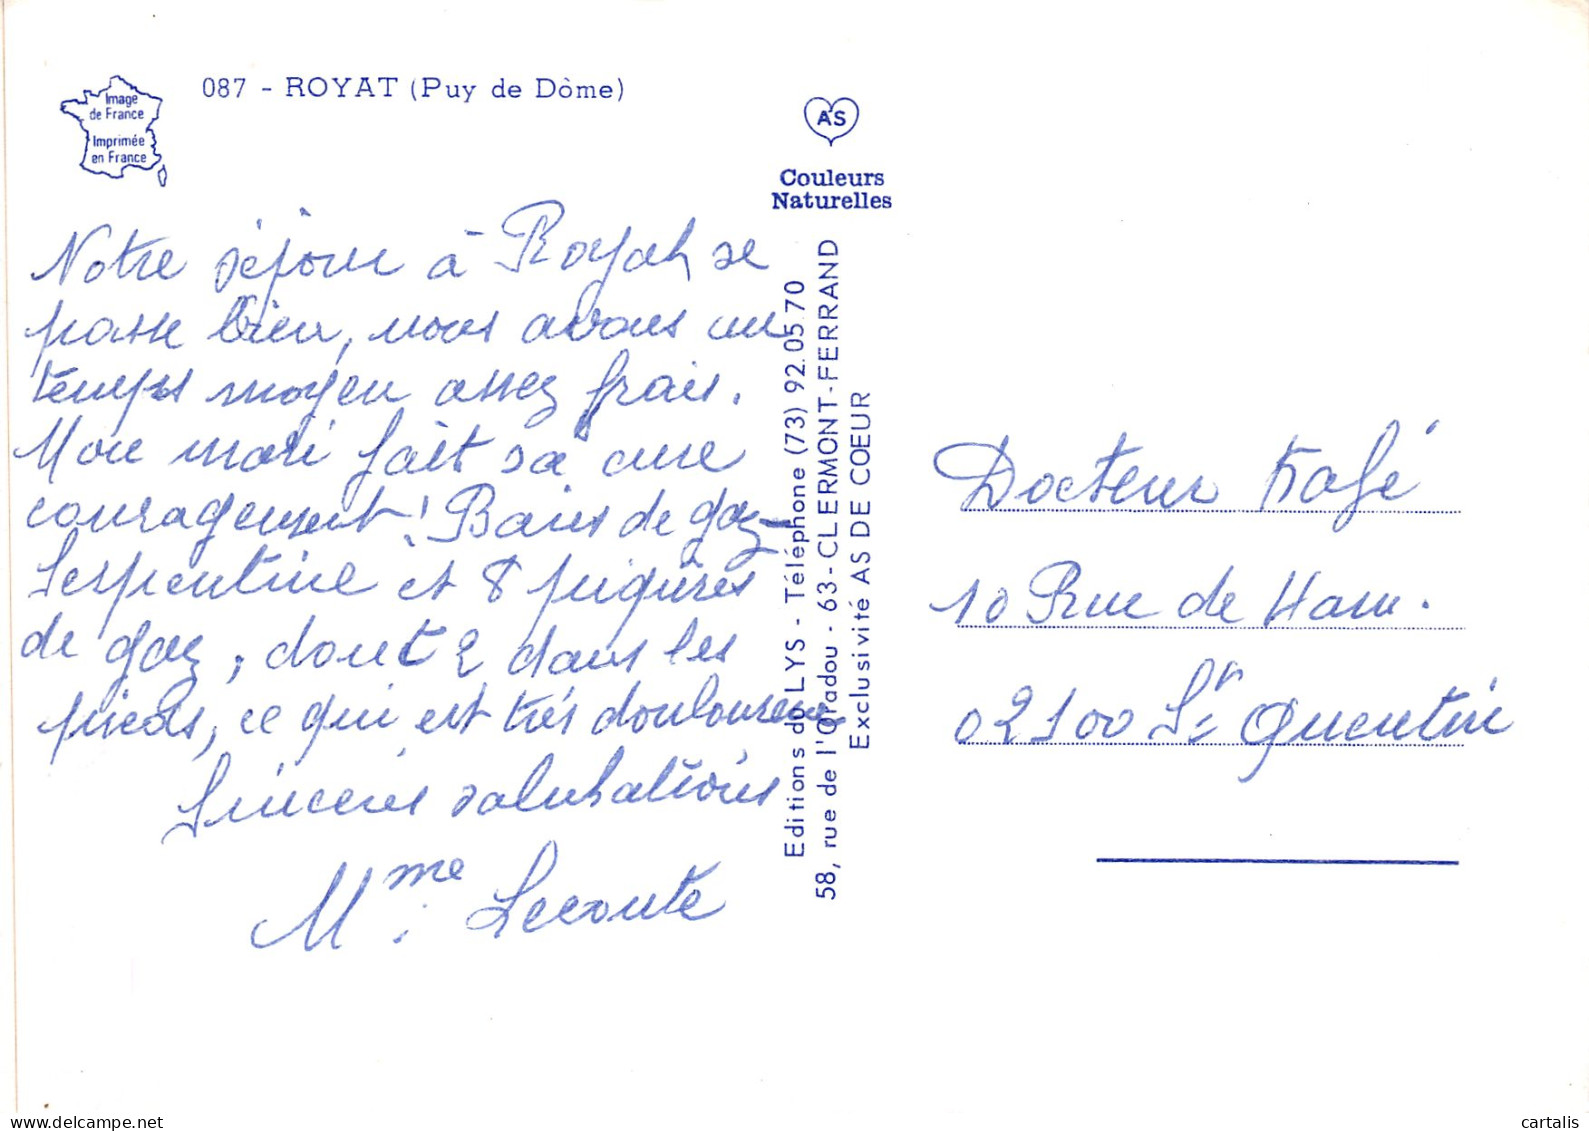 087 - ROYAT (Puy de Dôme)
Image
de France
Imprimée
en France
AS
Couleurs
Naturelles
Notre séjour à Royat se
passe bien, nous avons un
temps moyen assez frais.
Mon mari fait sa cure
courageusement ! Bains de gaz
Serpentine et 8 piqûres
de gaz, dont 2 dans les
pieds, ce qui est très douloureux
Sincères salutations
Mme Lecoute
Editions du LYS - Téléphone (73) 92.05.70
58, rue de l'Oradou - 63 - CLERMONT-FERRAND
Exclusivité AS DE COEUR
Docteur
10 Rue de Ham.
02100 St Quentin
cartalis.com